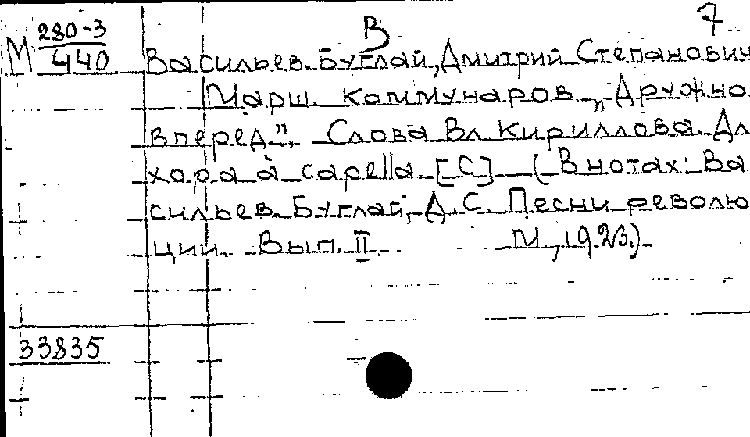 В 7
М 280-3
440
Васильев-Буглай, Дмитрий Степанович
Марш коммунаров „Дружно
вперед". Слова Вл. Кириллова. Дл
хора a capella. [C] (В нотах: Ва
сильев-Буглай, Д. С. Песни револю
ции. Вып. II М., 1923.)
33835